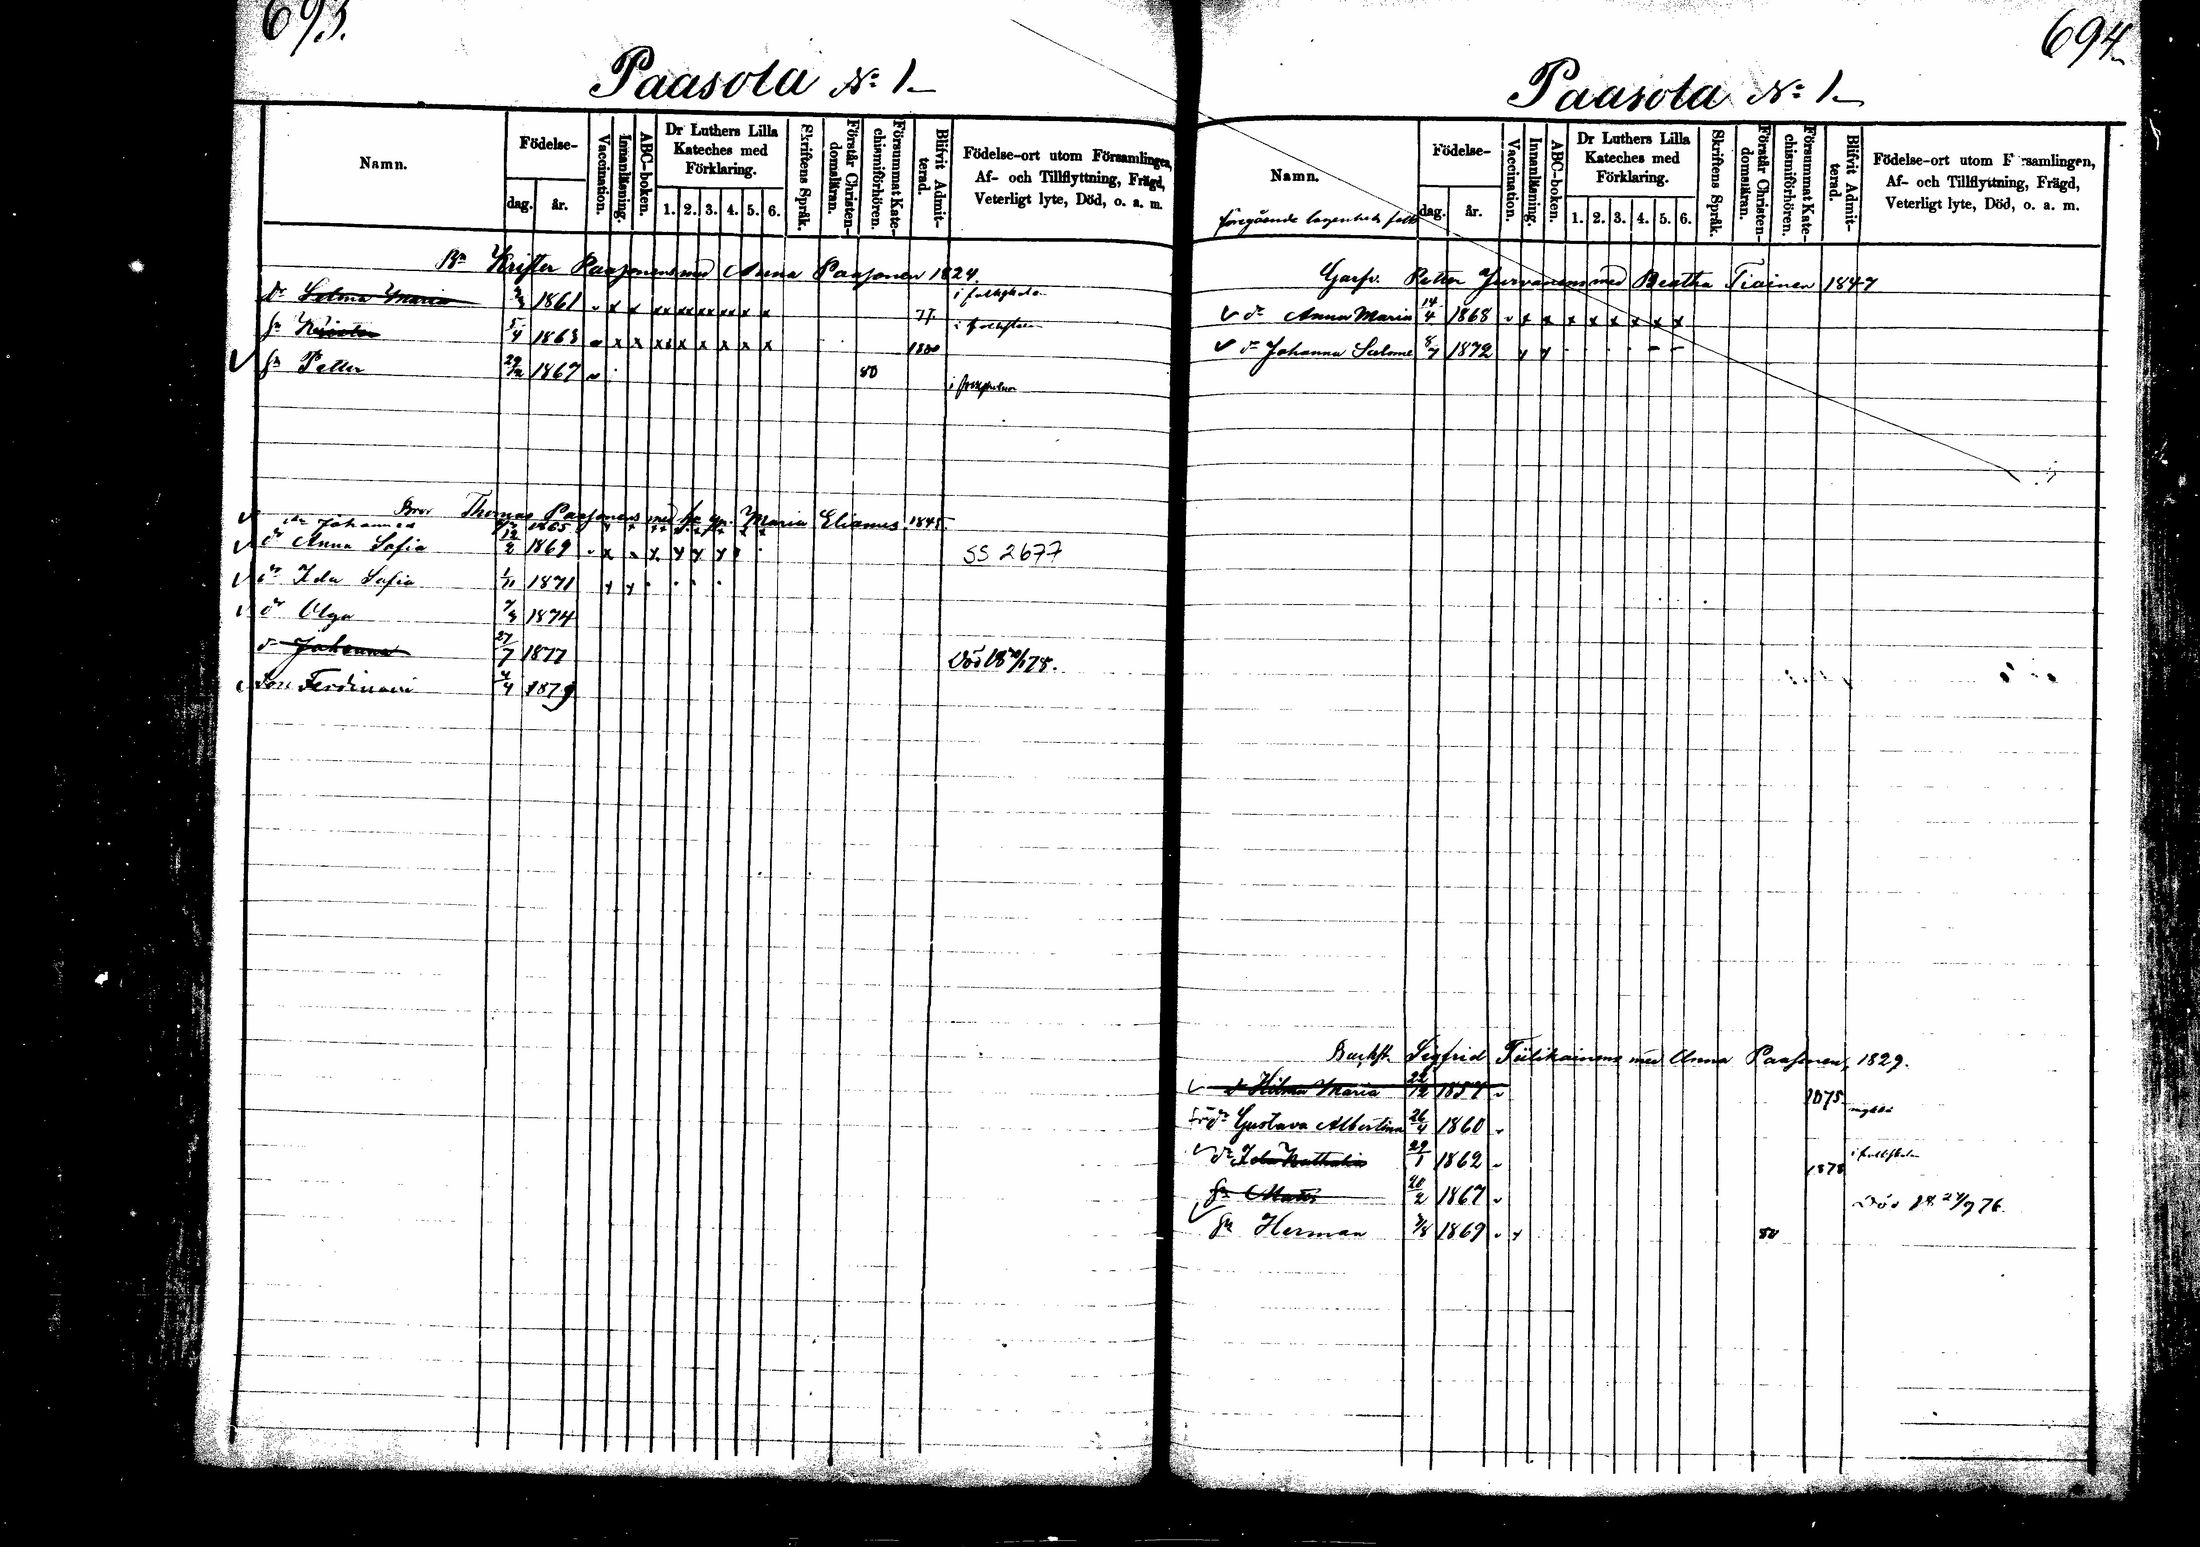 693.
Paasola No 1
Namn.
Födelse-
dag.
år.
Vaccination.
Innanläsning.
ABC-boken.
Dr Luthers Lilla
Kateches med
Förklaring.
1. 2. 3. 4. 5. 6.
Skriftens Språk.
Förstår Christen-
domsläran.
Försummat Kate-
chismiförhören.
Blifvit Admit-
terad.
Födelse-ort utom Församlingen,
Af- och Tillflyttning, Frägd,
Veterligt lyte, Död, o. a. m.
Bn Krister Paasonens med Anna Paasonen 1824.
dr Selma Maria 1861 v x x xx xx x x x x 77 i folkskolan
sn Krister 5/4 1863 v x x xx x x x x x 1880 i folkskolan
sn Petter 29/12 1867 v 80
Bror Thomas Paasonens med Maria Elianus 1845
Johannes 1865
dr Anna Sofia 12/2 1869 SS 2677
dr Ida Sofia 1/11 1871
dr Olga 1874
dr Johanna 27/7 1877 Död 78.
Son Ferdinand 4/4 1879
694
Paasola No 1
Namn.
Födelse-
dag.
år.
Vaccination.
Innanläsning.
ABC-boken.
Dr Luthers Lilla
Kateches med
Förklaring.
1. 2. 3. 4. 5. 6.
Skriftens Språk.
Förstår Christen-
domsläran.
Försummat Kate-
chismiförhören.
Blifvit Admit-
terad.
Födelse-ort utom F rsamlingen,
Af- och Tillflyttning, Frägd,
Veterligt lyte, Död, o. a. m.
föregående
Petter Jurvanens med Beatha Tiainen 1847
v dr Anna Maria 14/4 1868 v x x x x x x x x
v dr Johanna Salome 8/7 1872
Sigfrid Tiilikainens med Anna Paasonen, 1829.
dr Hilma Maria 22/12 1857 v 1875
dr Gustava Albertina 26/4 1860 v
dr Ida Nathalia 29/1 1862 v 1878 i folkskolan
sn Mats 20/2 1867 v Död 18 24/9 76.
sn Herman 1869 80